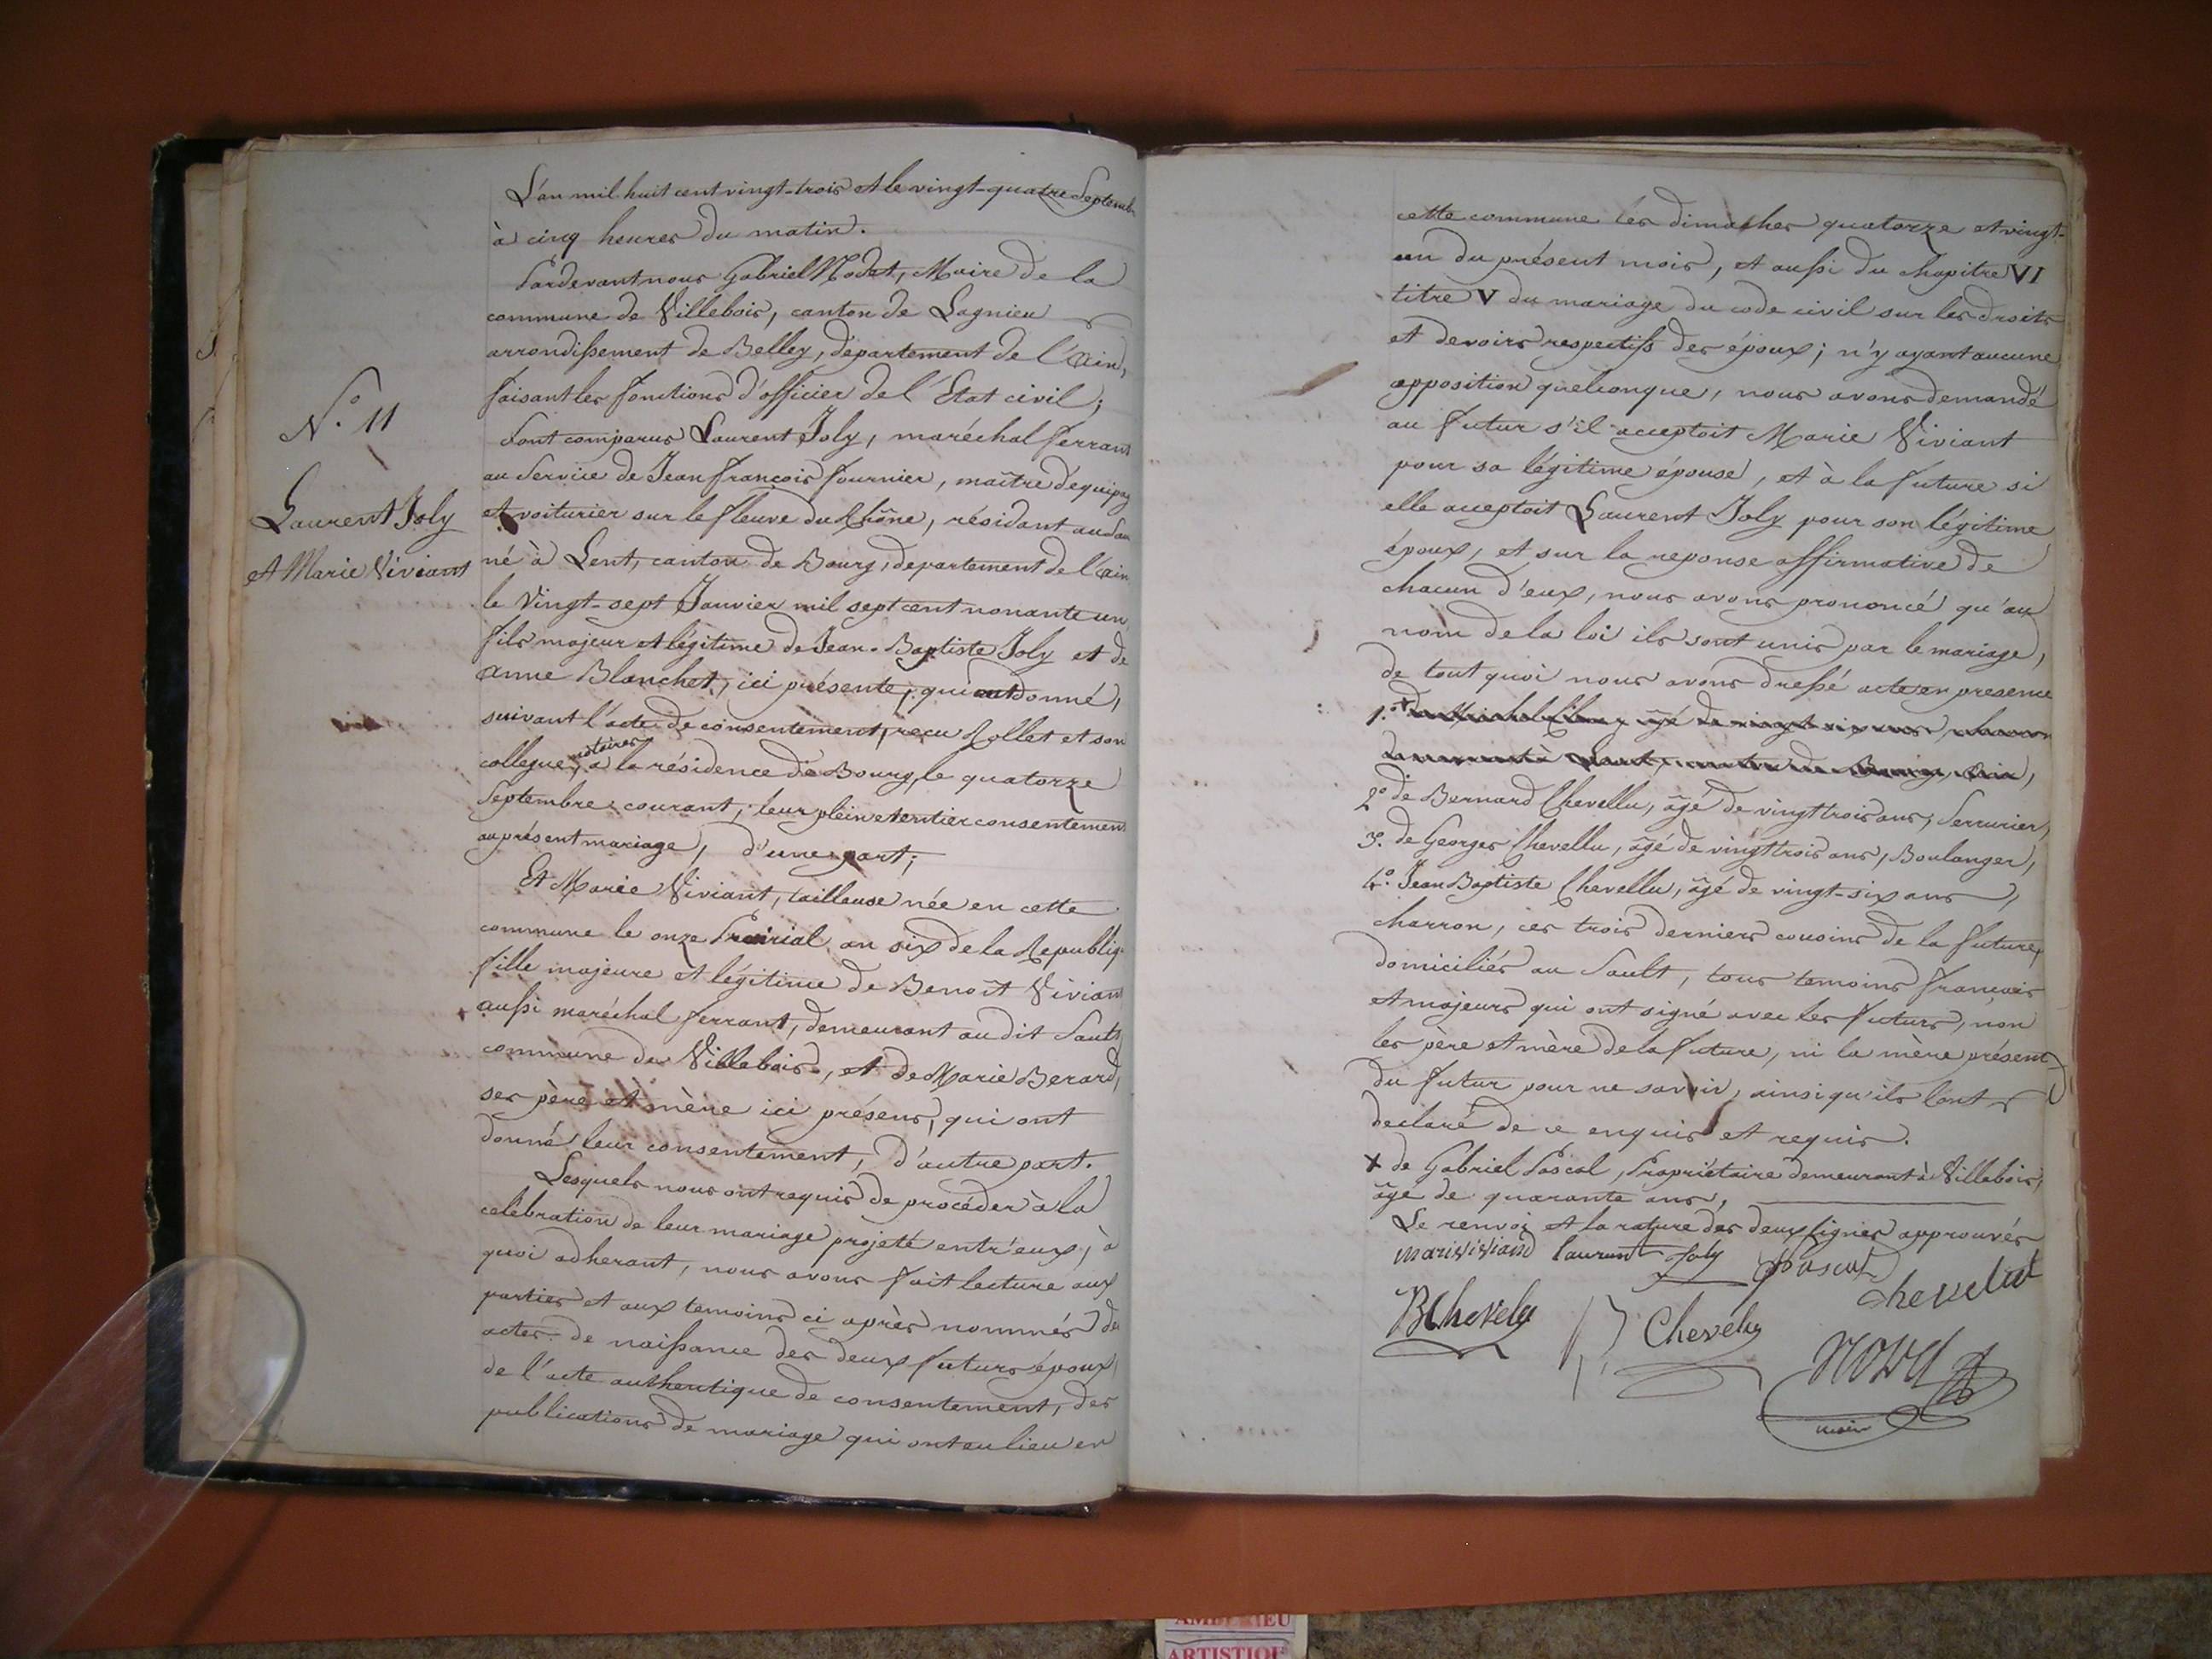 L'an mil huit cent vingt-trois et le vingt-quatre Septembre
à cinq heures du matin.
Pardevant nous Gabriel Nodet, Maire de la
commune de Villebois, canton de Lagnieu
arrondissement de Belley, département de l'Ain,
faisant les fonctions d'officier de l'Etat civil;
Sont comparus Laurent Joly, maréchal ferrant
au Service de Jean François Fournier, maître d'equipag
et voiturier sur le fleuve du Rhône, résidant au Sau
né à Lent, canton de Bourg, departement de l'ain
le Vingt-sept Janvier mil sept cent nonante un
fils majeur et légitime de Jean-Baptiste Joly et de
Anne Blanchet, ici présente, qui ont donné,
suivant l'acte de consentement, reçu Rollet et son
collegue, notaires à la résidence de Bourg, le quatorze
Septembre courant, leur plein et entier consentement
au présent mariage, d'une part;
Et Marie Viviant, tailleuse née en cette
commune le onze Prairial an six de la Republiq.
fille majeure et légitime de Benoît Viviant
aussi maréchal ferrant, demeurant au dit Sault
commune de Villebois, et de Marie Berard,
ses père et mère ici présens, qui ont
donné leur consentement, d'autre part.
Lesquels nous ont requis de procéder à la
celebration de leur mariage projeté entr'eux, à
quoi adherant, nous avons fait lecture aux
parties et aux temoins ci après nommés des
actes de naissance des deux futurs époux,
de l'acte authentique de consentement, des
publications de mariage qui ont eu lieu en
N.º 11
Laurent Joly
et Marie Viviant
cette commune les dimaches quatorze et vingt-
un du présent mois, et aussi du chapitre VI
titre V du mariage du code civil sur les droits
et devoirs respectifs des époux; n'y ayant aucune
opposition quelconque, nous avons demandé
au futur s'il acceptoit Marie Viviant
pour sa légitime épouse, et à la future si
elle acceptoit Laurent Joly pour son légitime
époux, et sur la reponse affirmative de
chacun d'eux, nous avons prononcé qu'au
nom de la loi ils sont unis par le mariage,
de tout quoi nous avons dressé acte en presence
1.º
2º de Bernard Chevellu, âgé de vingt trois ans, Serrurier,
3.º de Georges Chevellu, âgé de vingt trois ans, Boulanger,
4.º Jean Baptiste Chevellu, âgé de vingt-six ans,
charron, ces trois derniers cousins de la future,
domiciliés au Sault, tous temoins français
et majeurs qui ont signé avec les futurs, non
les père et mère de la future, ni la mère présent
du futur pour ne savoir, ainsi qu'ils l'ont
declaré de ce enquis et requis.
X de Gabriel Pascal, Propriétaire demeurant à Villebois,
âgé de quarante ans,
Le renvoi et la rature des deux lignes approuvés
mari viviand laurent Joly Pascal
BChevelu Chevelu chevelut
NODET
maire
AMBERIEU
ARTISTIQUE